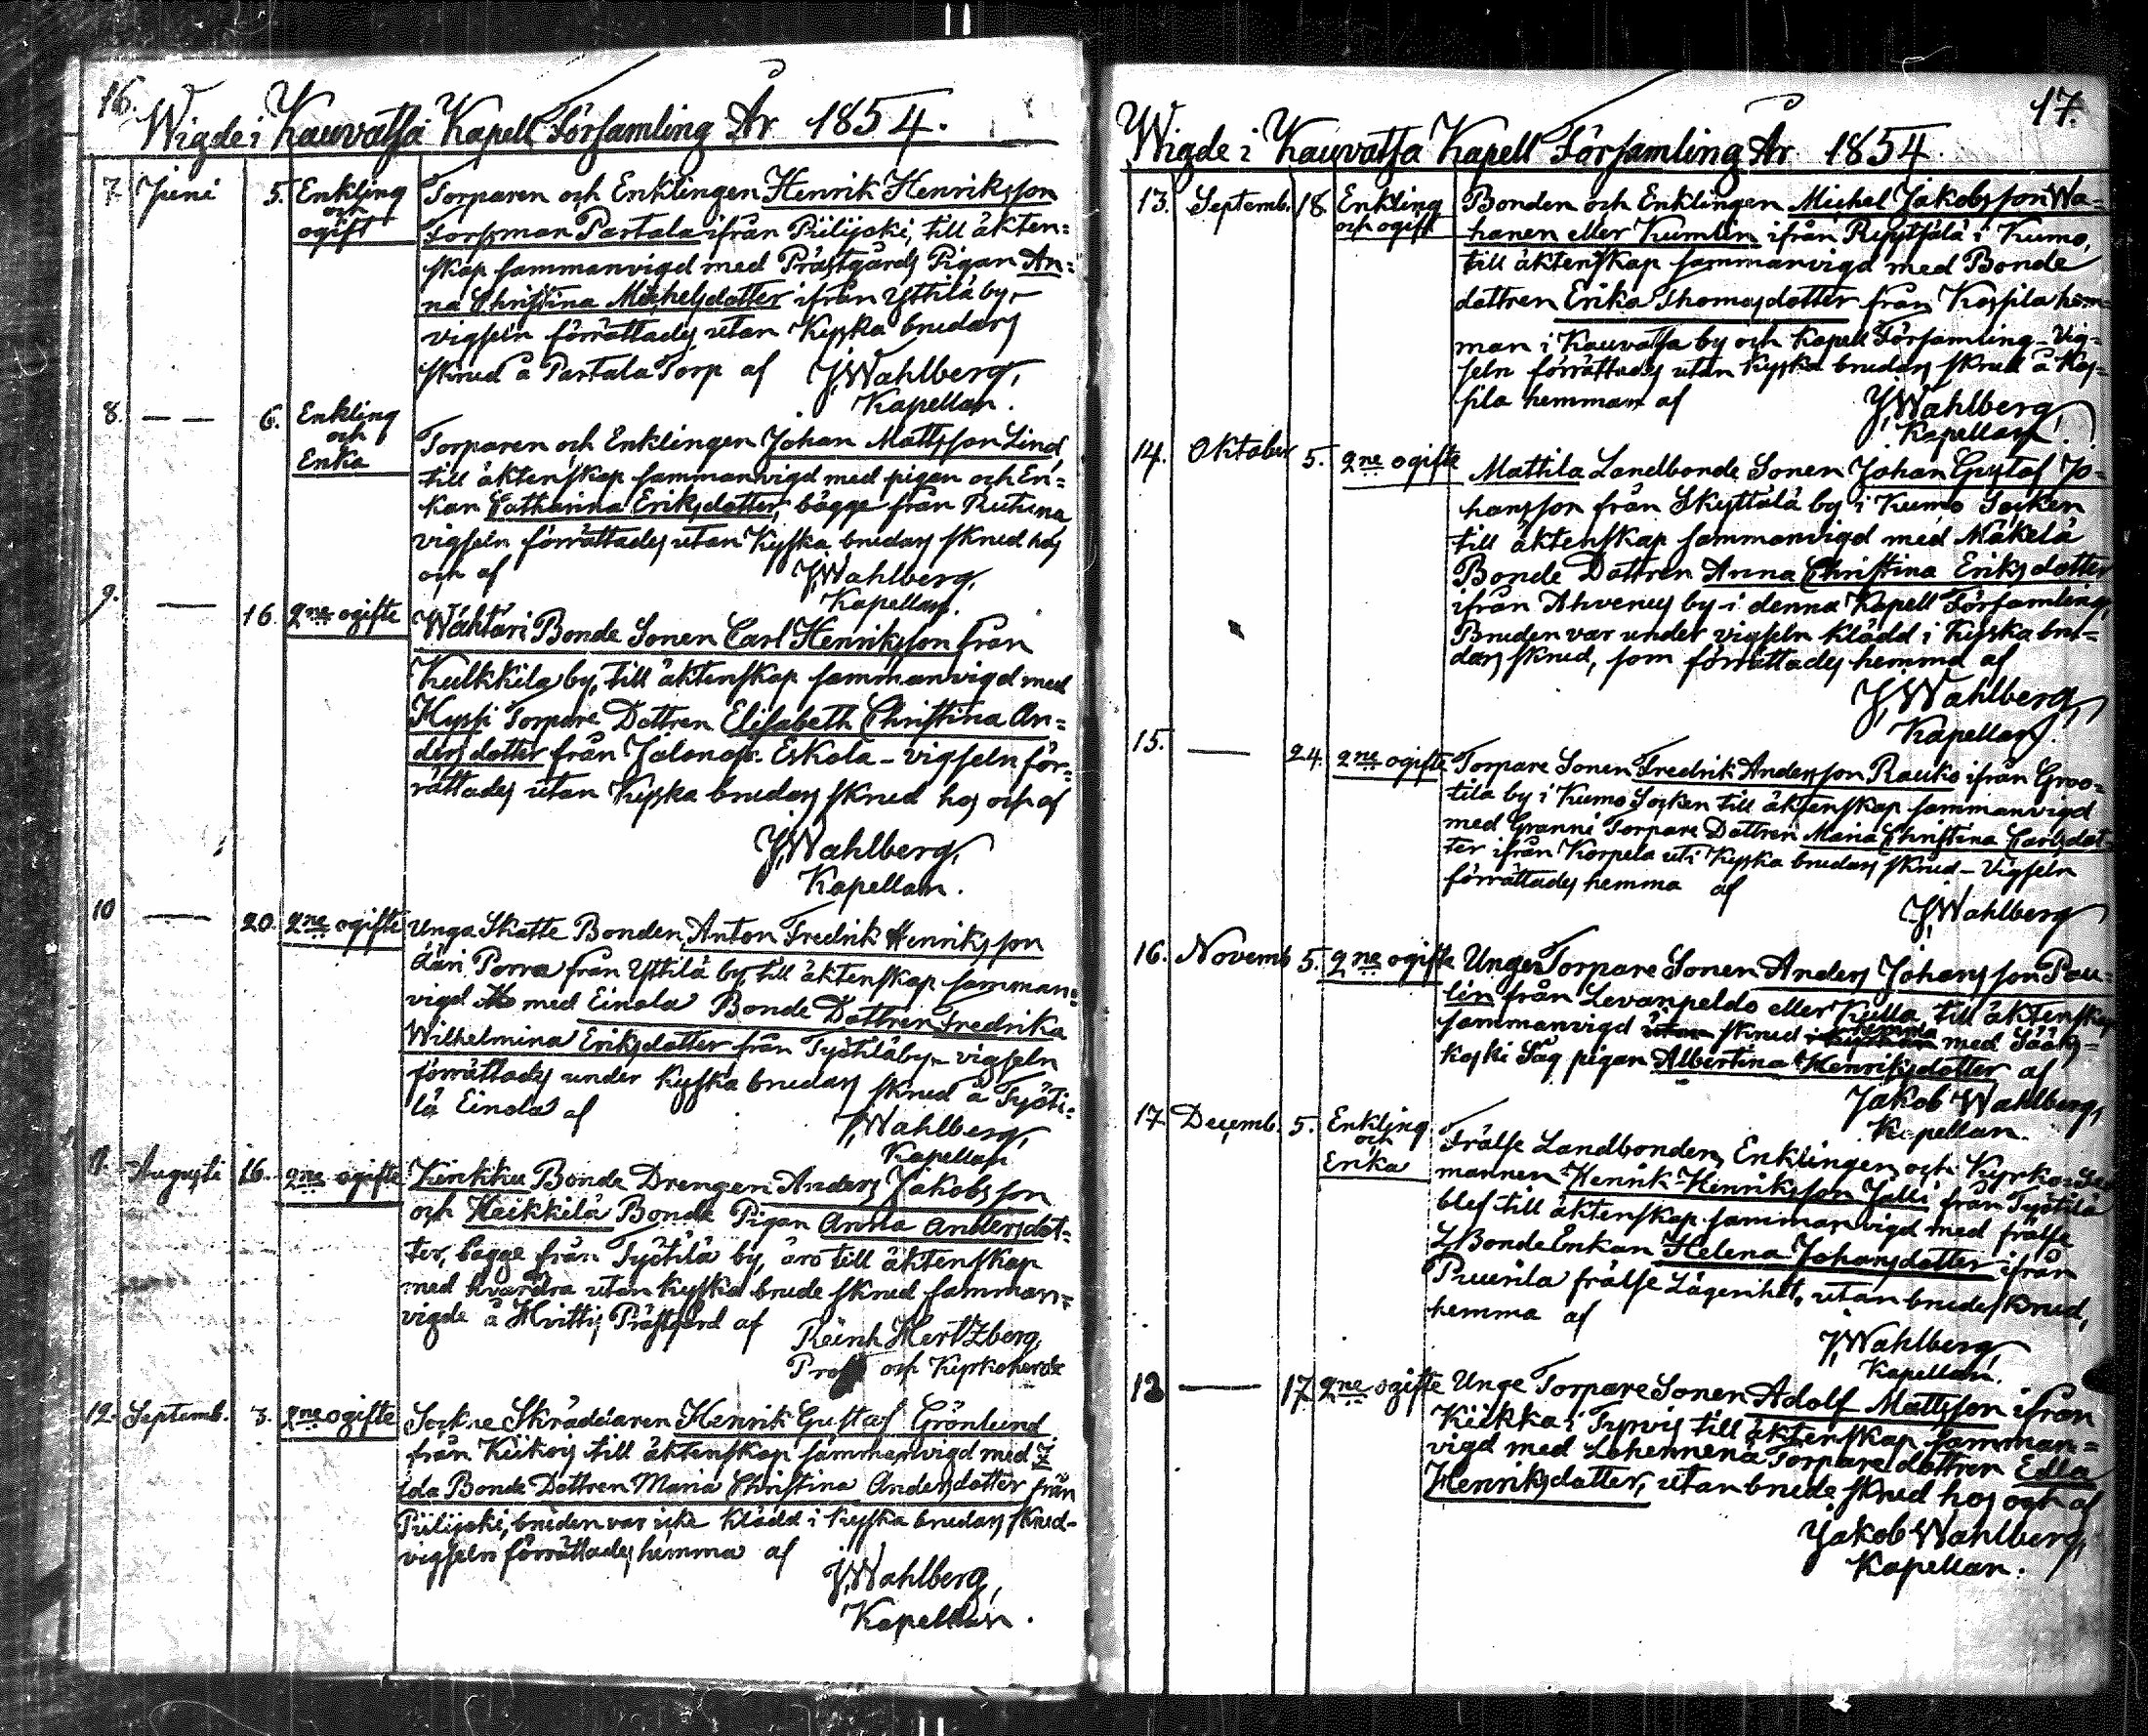 16.
Wigde i Kauvatsa Kapell Församling År 1854.
7. Juni 5. Enkling och ogift
Torparen och Enklingen Henrik Henriksson
Forssman Partala ifrån Piilijoki, till äkten=
skap sammanvigd med Prästgårds Pigan An=
na Christina Michelsdotter ifrån Yttilä by,
vigseln förrättades utan Kyska brudars
skrud å Partala Torp af JWahlberg,
Kapellan.
8. — — 6. Enkling och Enka
Torparen och Enklingen Johan Mattsson Lind
till äktenskap sammanvigd med pigan och En=
kan Catharina Eriksdotter, bägge från
vigseln förrättades utan Kyska brudars skrud hos
och af JWahlberg,
Kapellan.
9. — 16. 2ne ogifte
Wähtäri Bonde Sonen Carl Henriksson från
Kulkkila by, till äktenskap sammanvigd med
Kyssi Torpare Dottren Elisabeth Christina An=
dersdotter från Jalonoja Eskola – vigseln för=
rättades utan Kyska brudars skrud hos och af
JWahlberg,
Kapellan.
10 — 20. 2ne ogifte
Unga Skatte Bonden Anton Fredrik Henriksson
Porra från Yttilä by, till äktenskap samman=
vigd med Einola Bonde Dottren Fredrika
Wilhelmina Eriksdotter från Työtilä by – vigseln
förrättades under Kyska brudars skrud å Työti=
lä Einola af
JWahlberg,
Kapellan
Augusti 16. 2ne ogifte
Kirkku Bonde Drengen Anders Jakobsson
och Heikkilä Bonde Pigan Anna Andersdot=
ter, bägge från Työtilä by, äro till äktenskap
med hvarandra utan kyska brude skrud samman=
vigde å Hvittis Prästgård af
Reinh Hertzberg,
Prost och Kyrkoherde
12. Septemb. 3. 2ne ogifte
Sockne Skräddaren Henrik Gustaf Grönlund
från Kiikois till äktenskap sammanvigd med
Bonde Dottren Maria Christina Andersdotter från
Piilijoki, bruden var icke klädd i kyska brudars skrud –
vigseln förrättades hemma af
JWahlberg,
Kapellan.
17.
Wigde i Kauvatsa Kapell Församling År 1854.
13. Septemb. 18. Enkling och ogift
Bonden och Enklingen Michel Jakobsson Wa=
hanen eller Kumlin ifrån Ryytsälä i Kumo,
till äktenskap sammanvigd med Bonde
dottren Erika Thomasdotter från Kospila hem=
man i Kauvatsa by och Kapell Församling – Vig=
seln förrättades utan Kyska brudars skrud å Kos=
pila hemman af JWahlberg,
Kapellan.
14. Oktober 5. 2ne ogifte
Mattila Landbonde Sonen Johan Gustaf Jo=
hansson från Skyttälä by i Kumo Socken
till äktenskap sammanvigd med Mäkelä
Bonde Dottren Anna Christina Eriksdotter
ifrån Ahvenus by i denna Kapell Församling,
Bruden var under vigseln klädd i Kyska bru=
dars skrud, som förrättades hemma af
JWahlberg,
Kapellan.
15. — 24. 2ne ogifte
Torpare Sonen Fredrik Andersson Rauko ifrån Groo=
tila by i Kumo Socken till äktenskap sammanvigd
med Granni Torpare Dottren Maria Christina Carlsdot=
ter ifrån Korpela uti Kyska brudars skrud – Vigseln
förrättades hemma af
JWahlberg
16. Novemb 5. 2ne ogifte
Unge Torpare Sonen Anders Johansson Pau=
lin från Levanpeldo eller Kulla, till äktenskap
sammanvigd utan skrud hemma med Sääks=
koski Såg pigan Albertina Henriksdotter af
Jakob Wahlberg,
Kapellan.
17 Decemb. 5. Enkling och Enka
Frälse Landbonden, Enklingen och Kyrko=
mannen Henrik Henriksson Jalli från Työtilä
blef till äktenskap sammanvigd med frälse
L Bonde Enkan Helena Johansdotter ifrån
Puurila frälse Lägenhet, utan brudeskrud,
hemma af
JWahlberg
Kapellan.
18 — 17 2ne ogifte
Unge Torpare Sonen Adolf Mattsson ifrån
Kiikka i Tyrvis till äktenskap samman=
vigd med Lehennenä Torpare dottren Edla
Henriksdotter, utan brude skrud hos och af
Jakob Wahlberg,
Kapellan.